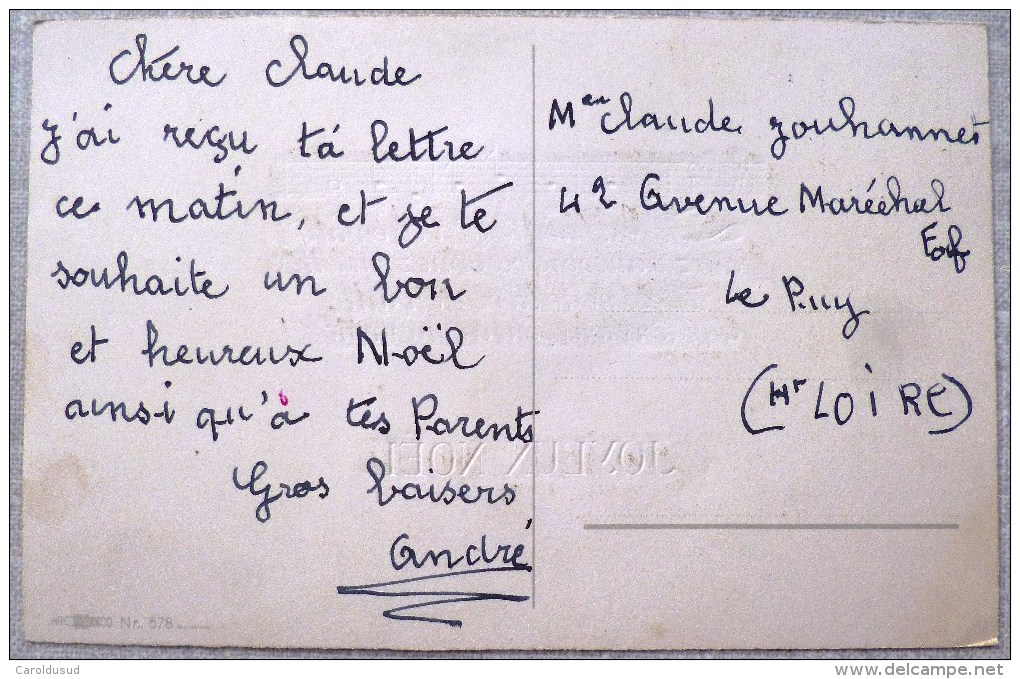 Chère Claude
j'ai reçu tá lettre
ce matin, et je te
souhaite un bon
et heureux Noël
ainsi qu'à tes Parents
Gros baisers
André
Claude Jouhannet
42 Avenue Maréchal
Le Puy
(Hr LOIRE)
JOYEUX NOEL
Nr. 578
Caroldusud
www.delcampe.net